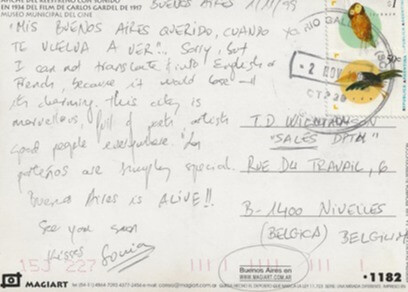 AFICHE DEL REESTRENO CON SONIDO
EN 1934 DEL FILM DE CARLOS GARDEL DE 1917
MUSEO MUNICIPAL DEL CINE
BUENOS AIRES 1/11/99
"MIS BUENOS AIRES QUERIDO, CUANDO
TE VUELVA A VER"... Sorry, but
I can not translate it into English or
French, because it would lose
its charming. This city is
marvellous, full of artists
good people everywhere. Los
porteños are simply special.
Buenos Aires is ALIVE!!
See you soon
Kisses
Sonia
2 NOV
T.D.
"SALES DPTM"
RUE DU TRAVAIL, 6
B-1400 NIVELLES
(BELGICA) BELGIUM
153 227
MAGIART
Buenos Aires en
WWW.MAGIART.COM
·1182